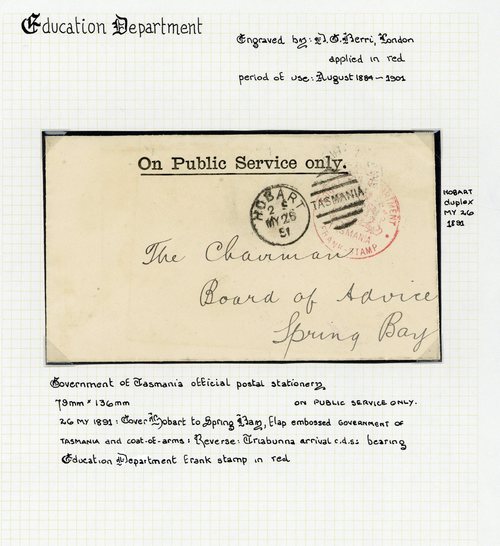 Education Department
Engraved by: D.G. Berri, London
applied in red
period of use: August 1884 – 1901
On Public Service only.
HOBART
2 S
MY 26
91
TASMANIA
TASMANIA
FRANK STAMP
HOBART
duplex
MY 26
1891
The Chairman
Board of Advice
Spring Bay
Government of Tasmania official postal stationery
79mm × 136mm
ON PUBLIC SERVICE ONLY.
26 MY 1891: Cover Hobart to Spring Bay, Flap embossed GOVERNMENT OF
TASMANIA and coat-of-arms: Reverse: Triabunna arrival c.d.s: bearing
Education Department frank stamp in red